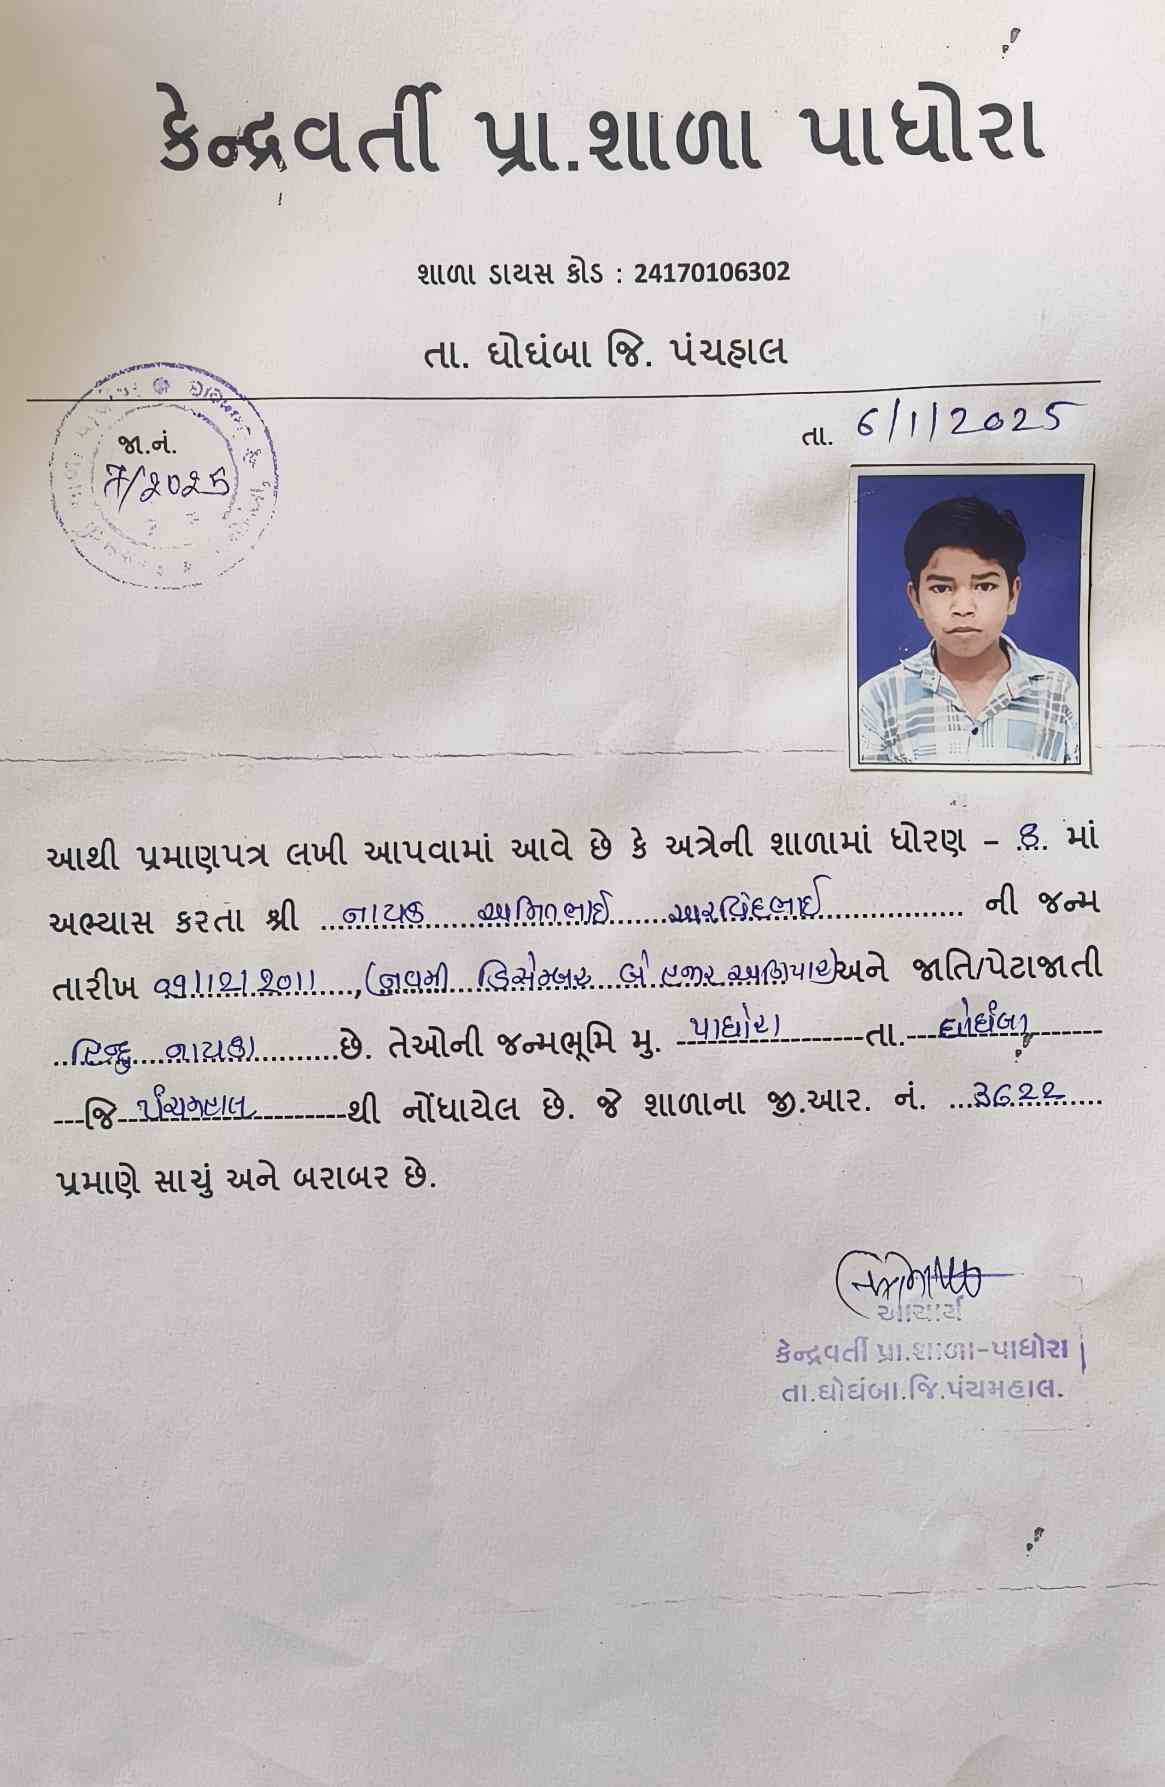 કેન્દ્રવર્તી પ્રા.શાળા પાધોરા
શાળા ડાયસ કોડ : 24170106302
તા. ઘોઘંબા જિ. પંચહાલ
જા.નં.
7/2025
તા. 6/1/2025
આથી પ્રમાણપત્ર લખી આપવામાં આવે છે કે અત્રેની શાળામાં ધોરણ – 8 માં
અભ્યાસ કરતા શ્રી નાયક અમિતભાઈ અરવિંદભાઈ ની જન્મ
તારીખ ૦૧/12/2011, (નવમી ડિસેમ્બર બે હજાર અગિયાર) અને જાતિ/પેટાજાતી
હિન્દુ નાયકા છે. તેઓની જન્મભૂમિ મુ. પાધોરા તા. ઘોઘંબા
જિ પંચમહાલ થી નોંધાયેલ છે. જે શાળાના જી.આર. નં. 3622
પ્રમાણે સાચું અને બરાબર છે.
આચાર્ય
કેન્દ્રવર્તી પ્રા.શાળા-પાધોરા
તા.ઘોઘંબા.જિ.પંચમહાલ.